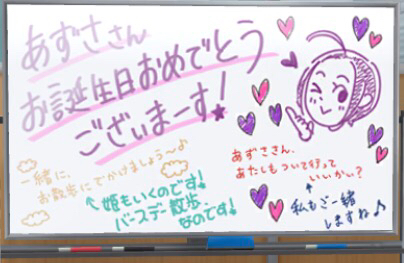 あずささん
お誕生日おめでとう
ございまーす!
一緒に、
お散歩にでかけましょう〜♪
姫もいくのです!
バースデー散歩、
なのです!
あずささん、
あたしもついて行って
いいかい?
私もご一緒
しますね♪